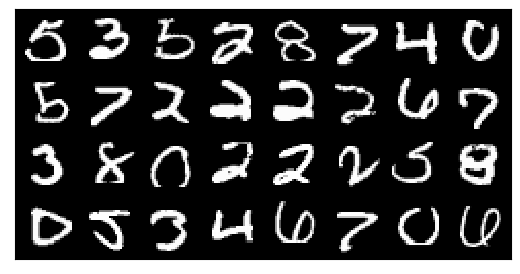 5 3 5 2 8 7 4 0
5 7 2 2 2 2 6 7
3 8 0 2 2 2 5 8
0 5 3 4 6 7 0 6